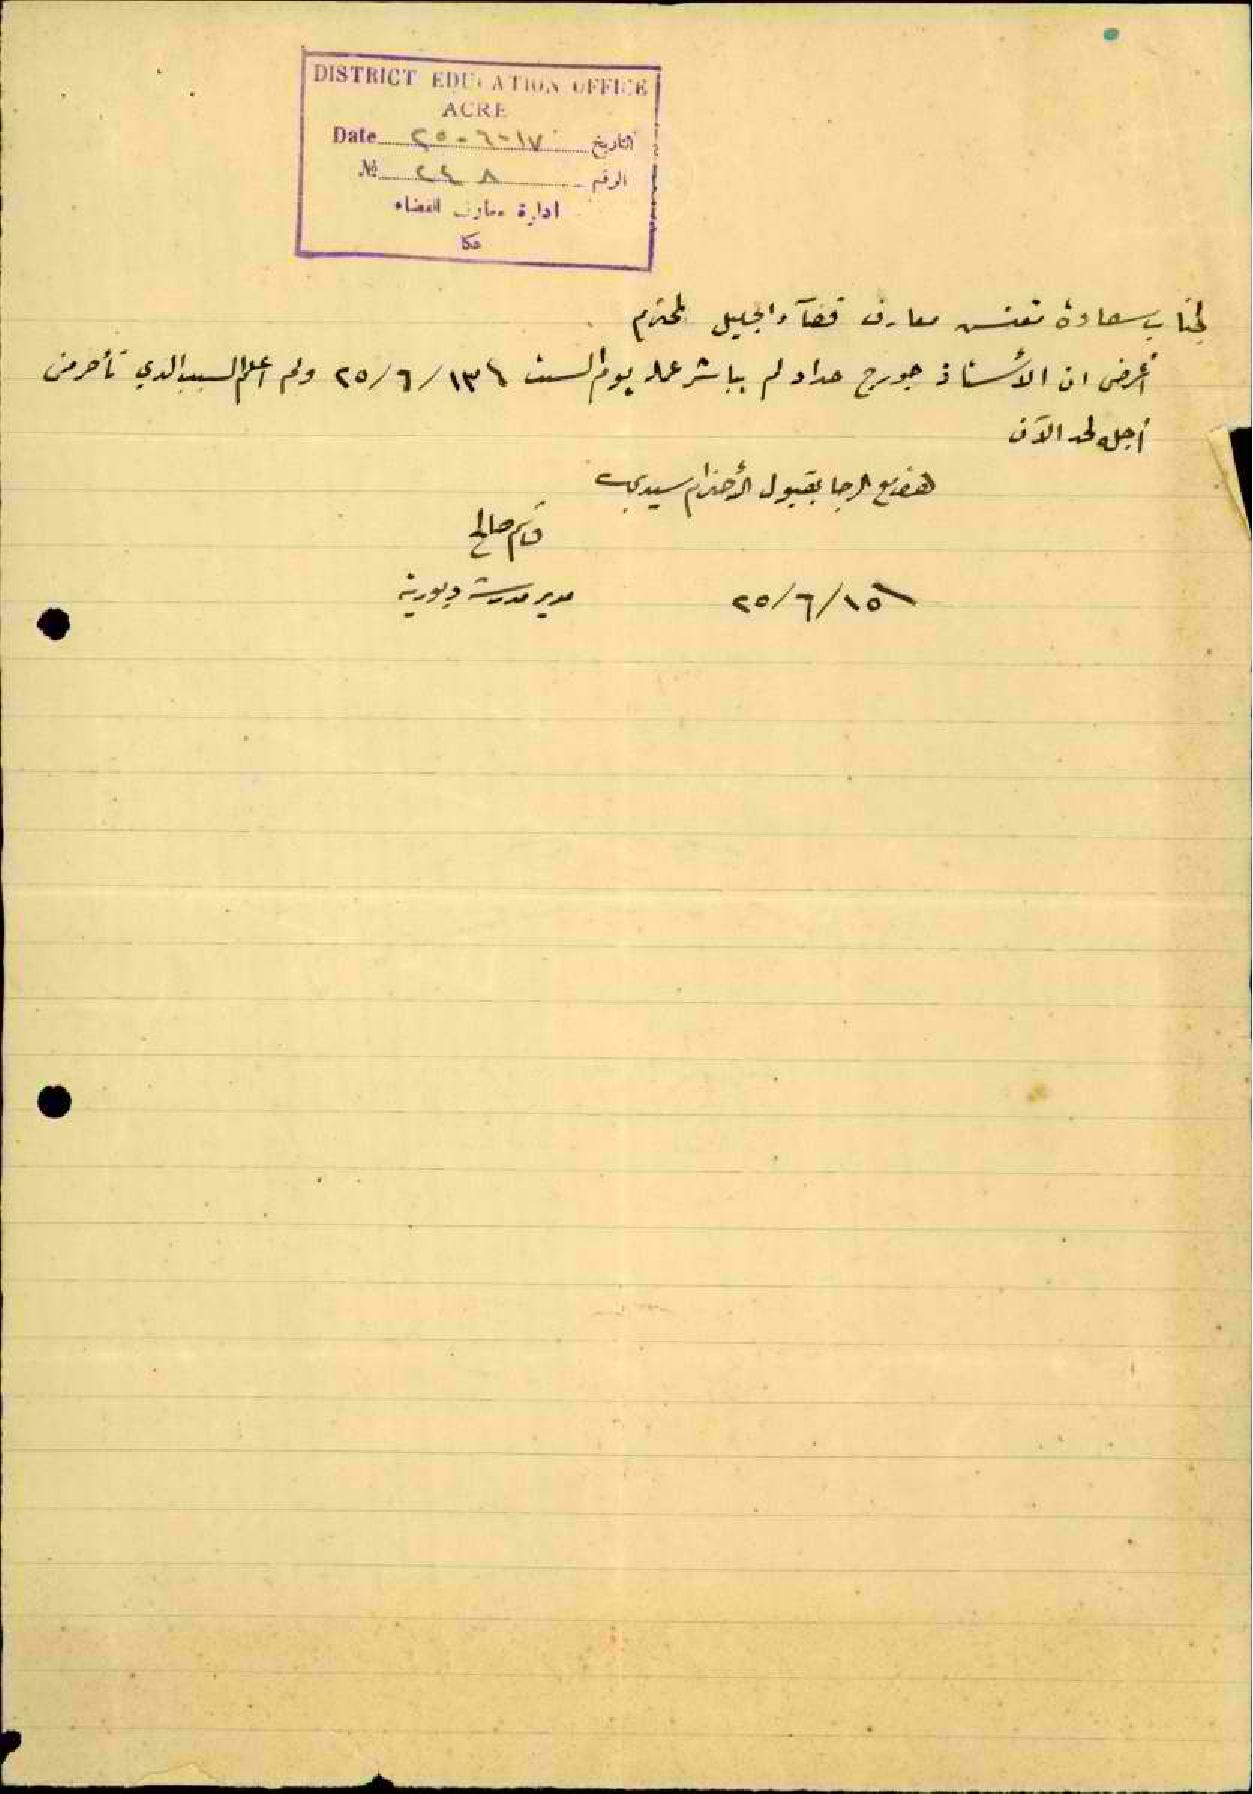 DISTRICT EDUCATION OFFICE
ACRE
Date ٢٥-٦-١٧ التاريخ
№ ٢٤٨ الرقم
ادارة معارف القضاء
عكا
لجناب سعادة مفتش معارف قضآء الجليل المحترم
أعرض ان الأستاذ جورج حداد لم يباشر عمله يوم السبت ١٣/٦/٢٥ ولم اعلم السبب الذي تأخر من
أجله لحد الآن
هذا مع الرجا بقبول الأحترام سيدي
قاسم صالح
١٥/٦/٢٥ مدير مدرسة دبورية